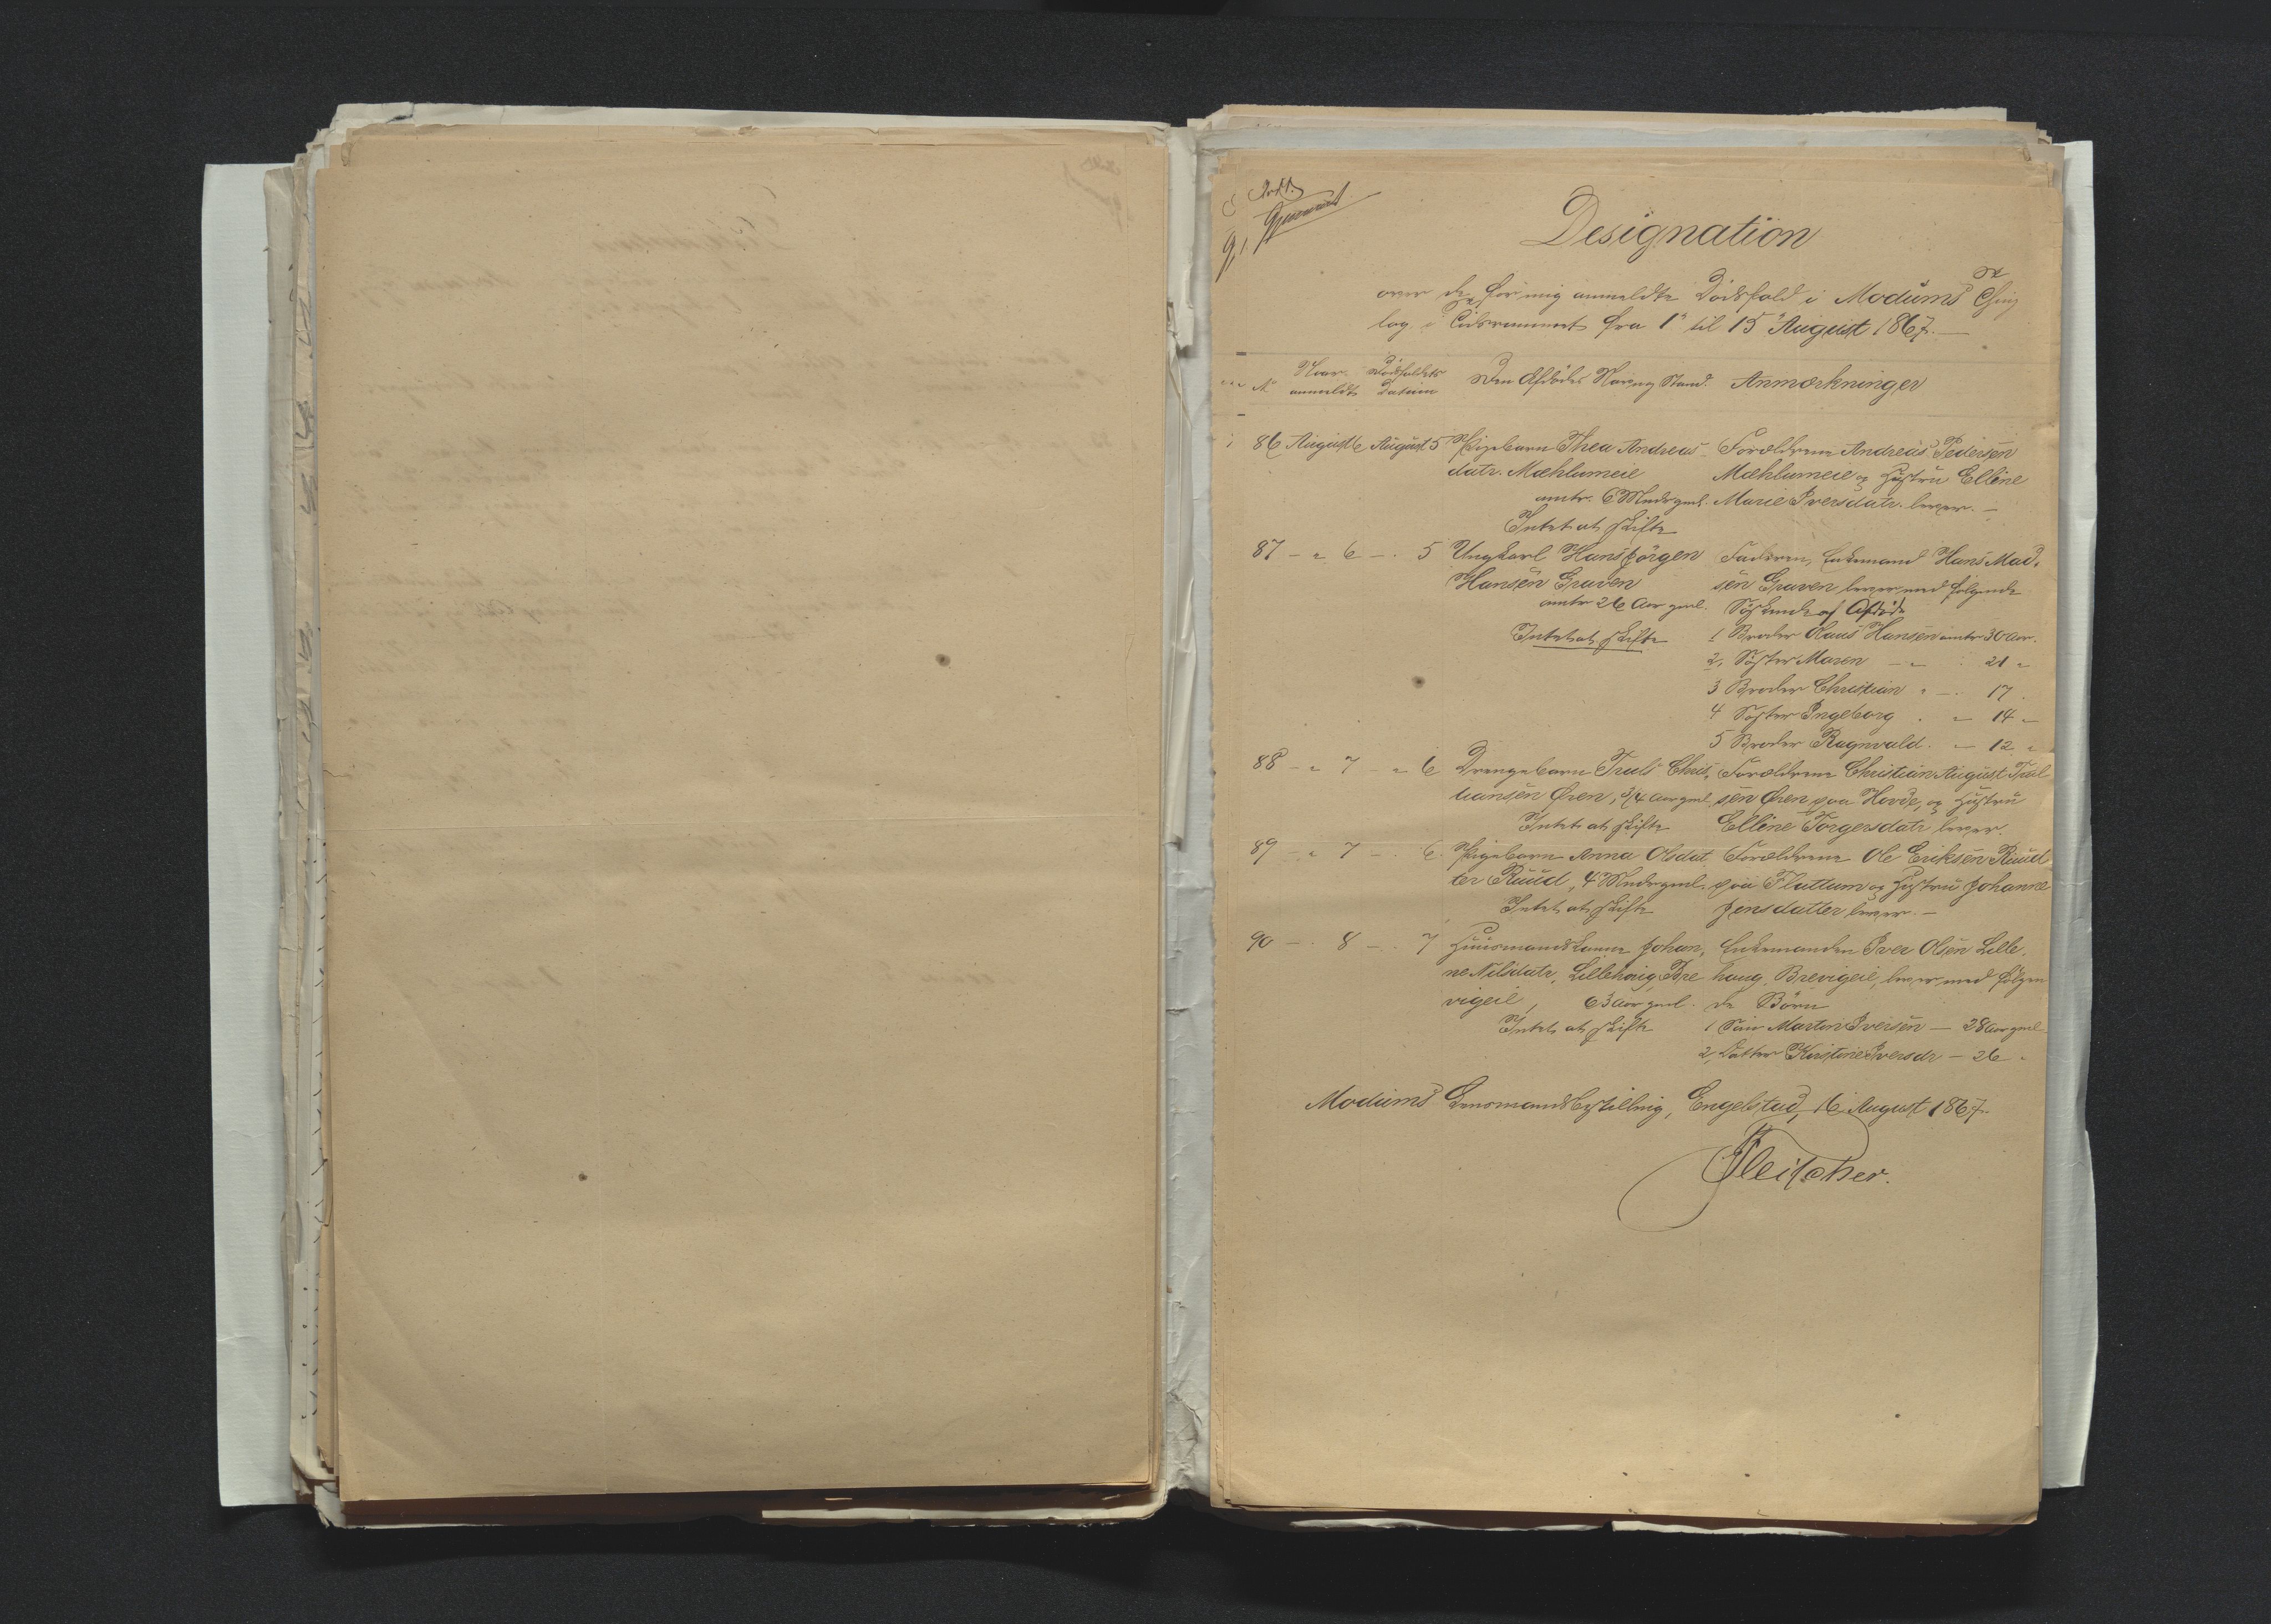 Designation
over de for mig anmeldte Dødsfald i Modums Thing
lag i Tidsrummet fra 1 til 15 August 1867.
No Naar anmeldt Dødsfaldets Datum Den Afdødes Navn og Stand. Anmærkninger
86 August 6 August 5 Pigebarn Thea Andreas Forældrene Andreas Pedersen
datr. Mæhlumeie Mæhlumeie og Hustru Elline
omtr. 6 Mndr gml. Marie Iversdatr. lever.
Intet at skifte
87 - " 6 - " 5 Ungkarl Hans Jørgen Faderen, Enkemand Hans Mad-
Hansen Graven sen Graven lever med følgende
omtr 26 Aar gml. Søskende af Afdøde
Intet at skifte 1 Broder Hans Hansen omtr 30 Aar.
2, Søster Maren - " 21 "
3 Broder Christian " - 17
4 Søster Ingeborg " - 14 "
5 Broder Ragnvald. - 12 "
88 - " 7 - " 6 Drengebarn Truls Chris- Forældrene Christian August Trul
tiansen Øren, 3/4 Aar gml. sen Øren paa Hovde, og Hustru
Intet at skifte Elline Torgersdatr lever.
89 - " 7 - " 6 Pigebarn Anna Olsdat Forældrene Ole Eriksen Ruud
ter Ruud, 4 Mndr gml. paa Flattum og Hustru Johanne
Intet at skifte Jensdatter lever.
90 - " 8 - " 7 Huusmandskone Johan- Enkemanden Iver Olsen Lille-
ne Nilsdatr, Lillehaug, Bre haug, Brevigeie, lever med følgen
vigeie, 63 Aar gml. de Børn
Intet at skifte 1 Søn Martin Iversen - 28 Aar gml
2, Datter Kirstine Iversdr - 26 "
Modums Lensmandsbestilling, Engelstad, 16 August 1867.
Fleischer.